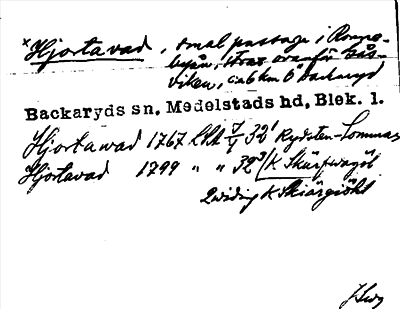 ×Hjortavad, smal passage i Rompe-
byån, strax ovanför Gås-
viken, ca 6 km Ö Backaryd
Backaryds sn, Medelstads hd, Blek. l.
Hjortawad 1767 32¹ Rydsten-Lommas
Hjortavad 1799 " " 32³ K Skärfwagöl
2widig K Skiärgiöhl